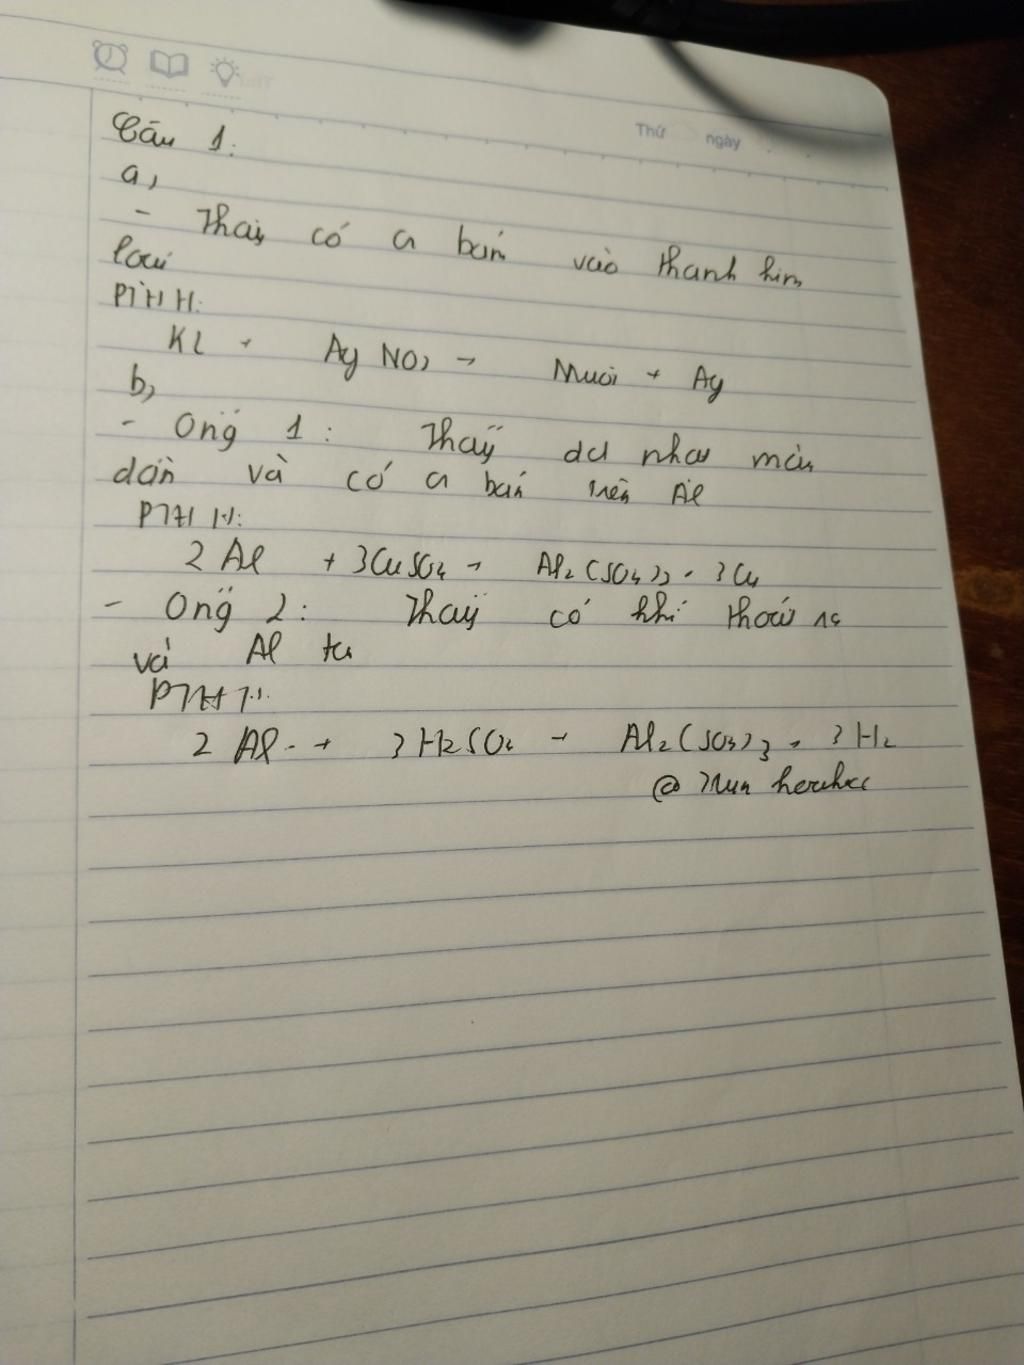 Thứ ngày
Câu 1:
a,
- Thấy có Ag bám vào thanh kim
loại
PTHH:
KL + AgNO3 → Muối + Ag
b,
- Ống 1: Thấy dd nhạt màu
dần và có Cu bám trên Al
PTHH:
2Al + 3CuSO4 → Al2(SO4)3 + 3Cu
- Ống 2: Thấy có khí thoát ra
và Al tan
PTHH:
2Al + 3H2SO4 → Al2(SO4)3 + 3H2